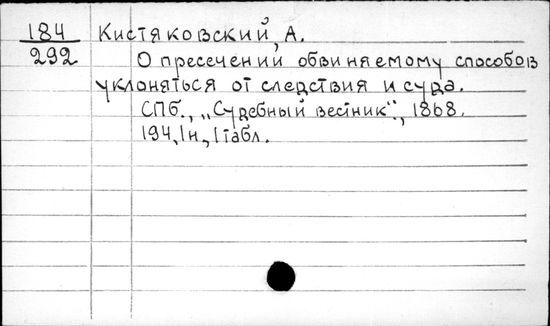 184 Кистяковский, А.
292 О пресечений обвиняемому способов
уклоняться от следствия и суда.
СПб., „Судебный вестник“, 1868.
194, 1н., 1 табл.